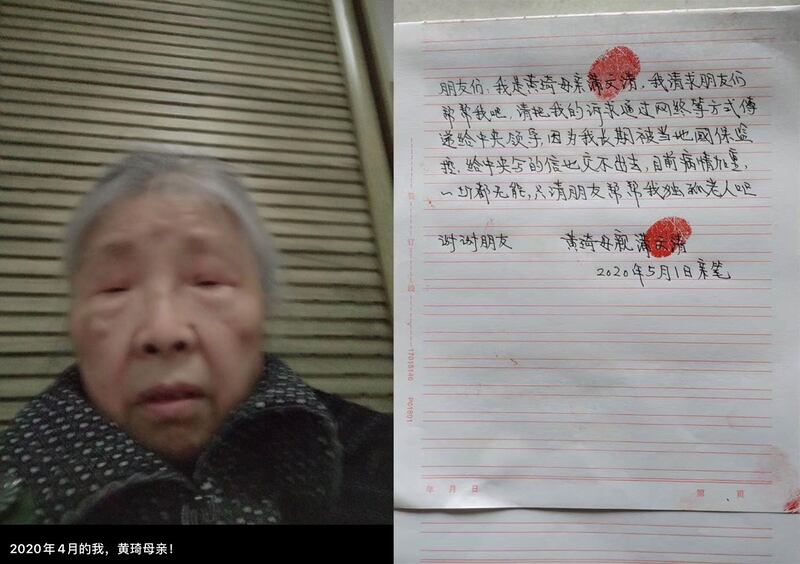 2020年4月的我，黄琦母亲！
朋友们，我是黄琦母亲蒲文清，我请求朋友们
帮帮我吧，请把我的诉求通过网终等方式傳
递给中央领导，因为我长期被当地國保监
控，给中央写的信也交不出去，目前病情加重，
一切都无能，只请朋友帮帮我独孤老人吧
谢谢朋友 黄琦母親蒲文清
2020年5月1日亲笔
17015146 PC1801
年 月 日 第 页